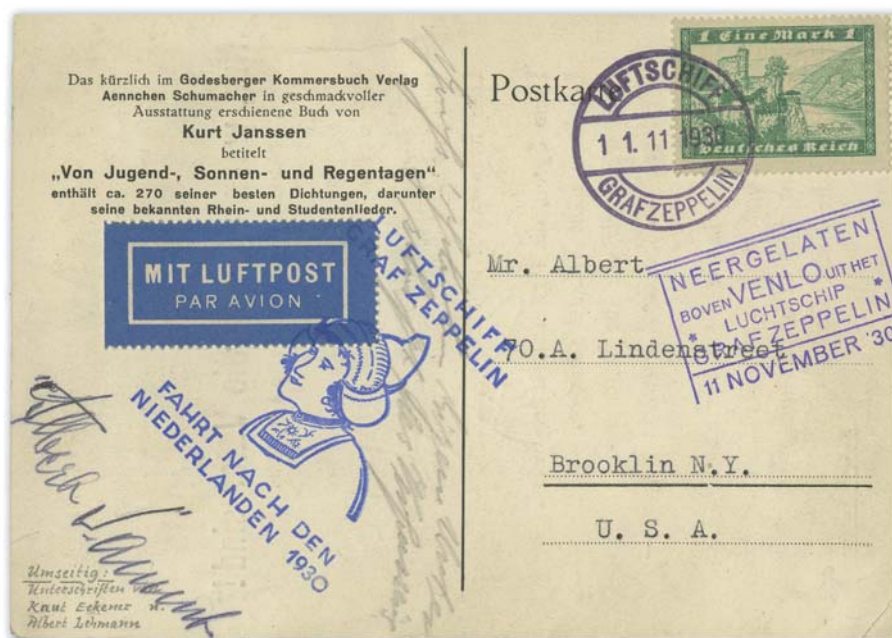 Das kürzlich im Godesberger Kommersbuch Verlag
Aennchen Schumacher in geschmackvoller
Ausstattung erschienene Buch von
Kurt Janssen
betitelt
„Von Jugend-, Sonnen- und Regentagen“
enthält ca. 270 seiner besten Dichtungen, darunter
seine bekannten Rhein- und Studentenlieder.
MIT LUFTPOST
PAR AVION
LUFTSCHIFF
GRAF ZEPPELIN
FAHRT NACH DEN
NIEDERLANDEN 1930
Umseitig:
Unterschriften von
Knut Eckener u.
Albert Lehmann
Postkarte
LUFTSCHIFF
11.11 1930
GRAF ZEPPELIN
1 Eine Mark 1
Deutsches Reich
NEERGELATEN
BOVEN VENLO UIT HET
LUCHTSCHIP
GRAF ZEPPELIN
11 NOVEMBER '30
Mr. Albert
70.A. Lindenstreet
Brooklin N.Y.
U. S. A.